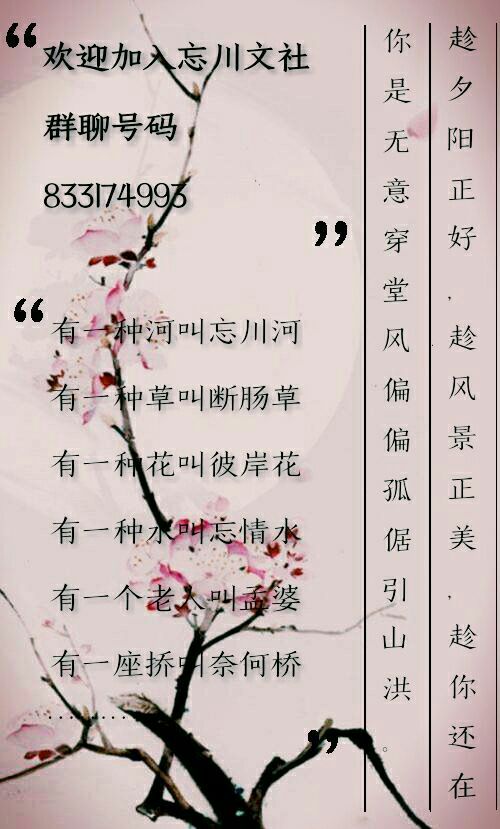 “欢迎加入忘川文社
群聊号码
833174993
”
“有一种河叫忘川河
有一种草叫断肠草
有一种花叫彼岸花
有一种水叫忘情水
有一个老人叫孟婆
有一座挢叫奈何桥
…………
”
趁夕阳正好，趁风景正美，趁你还在
你是无意穿堂风偏偏孤倨引山洪。